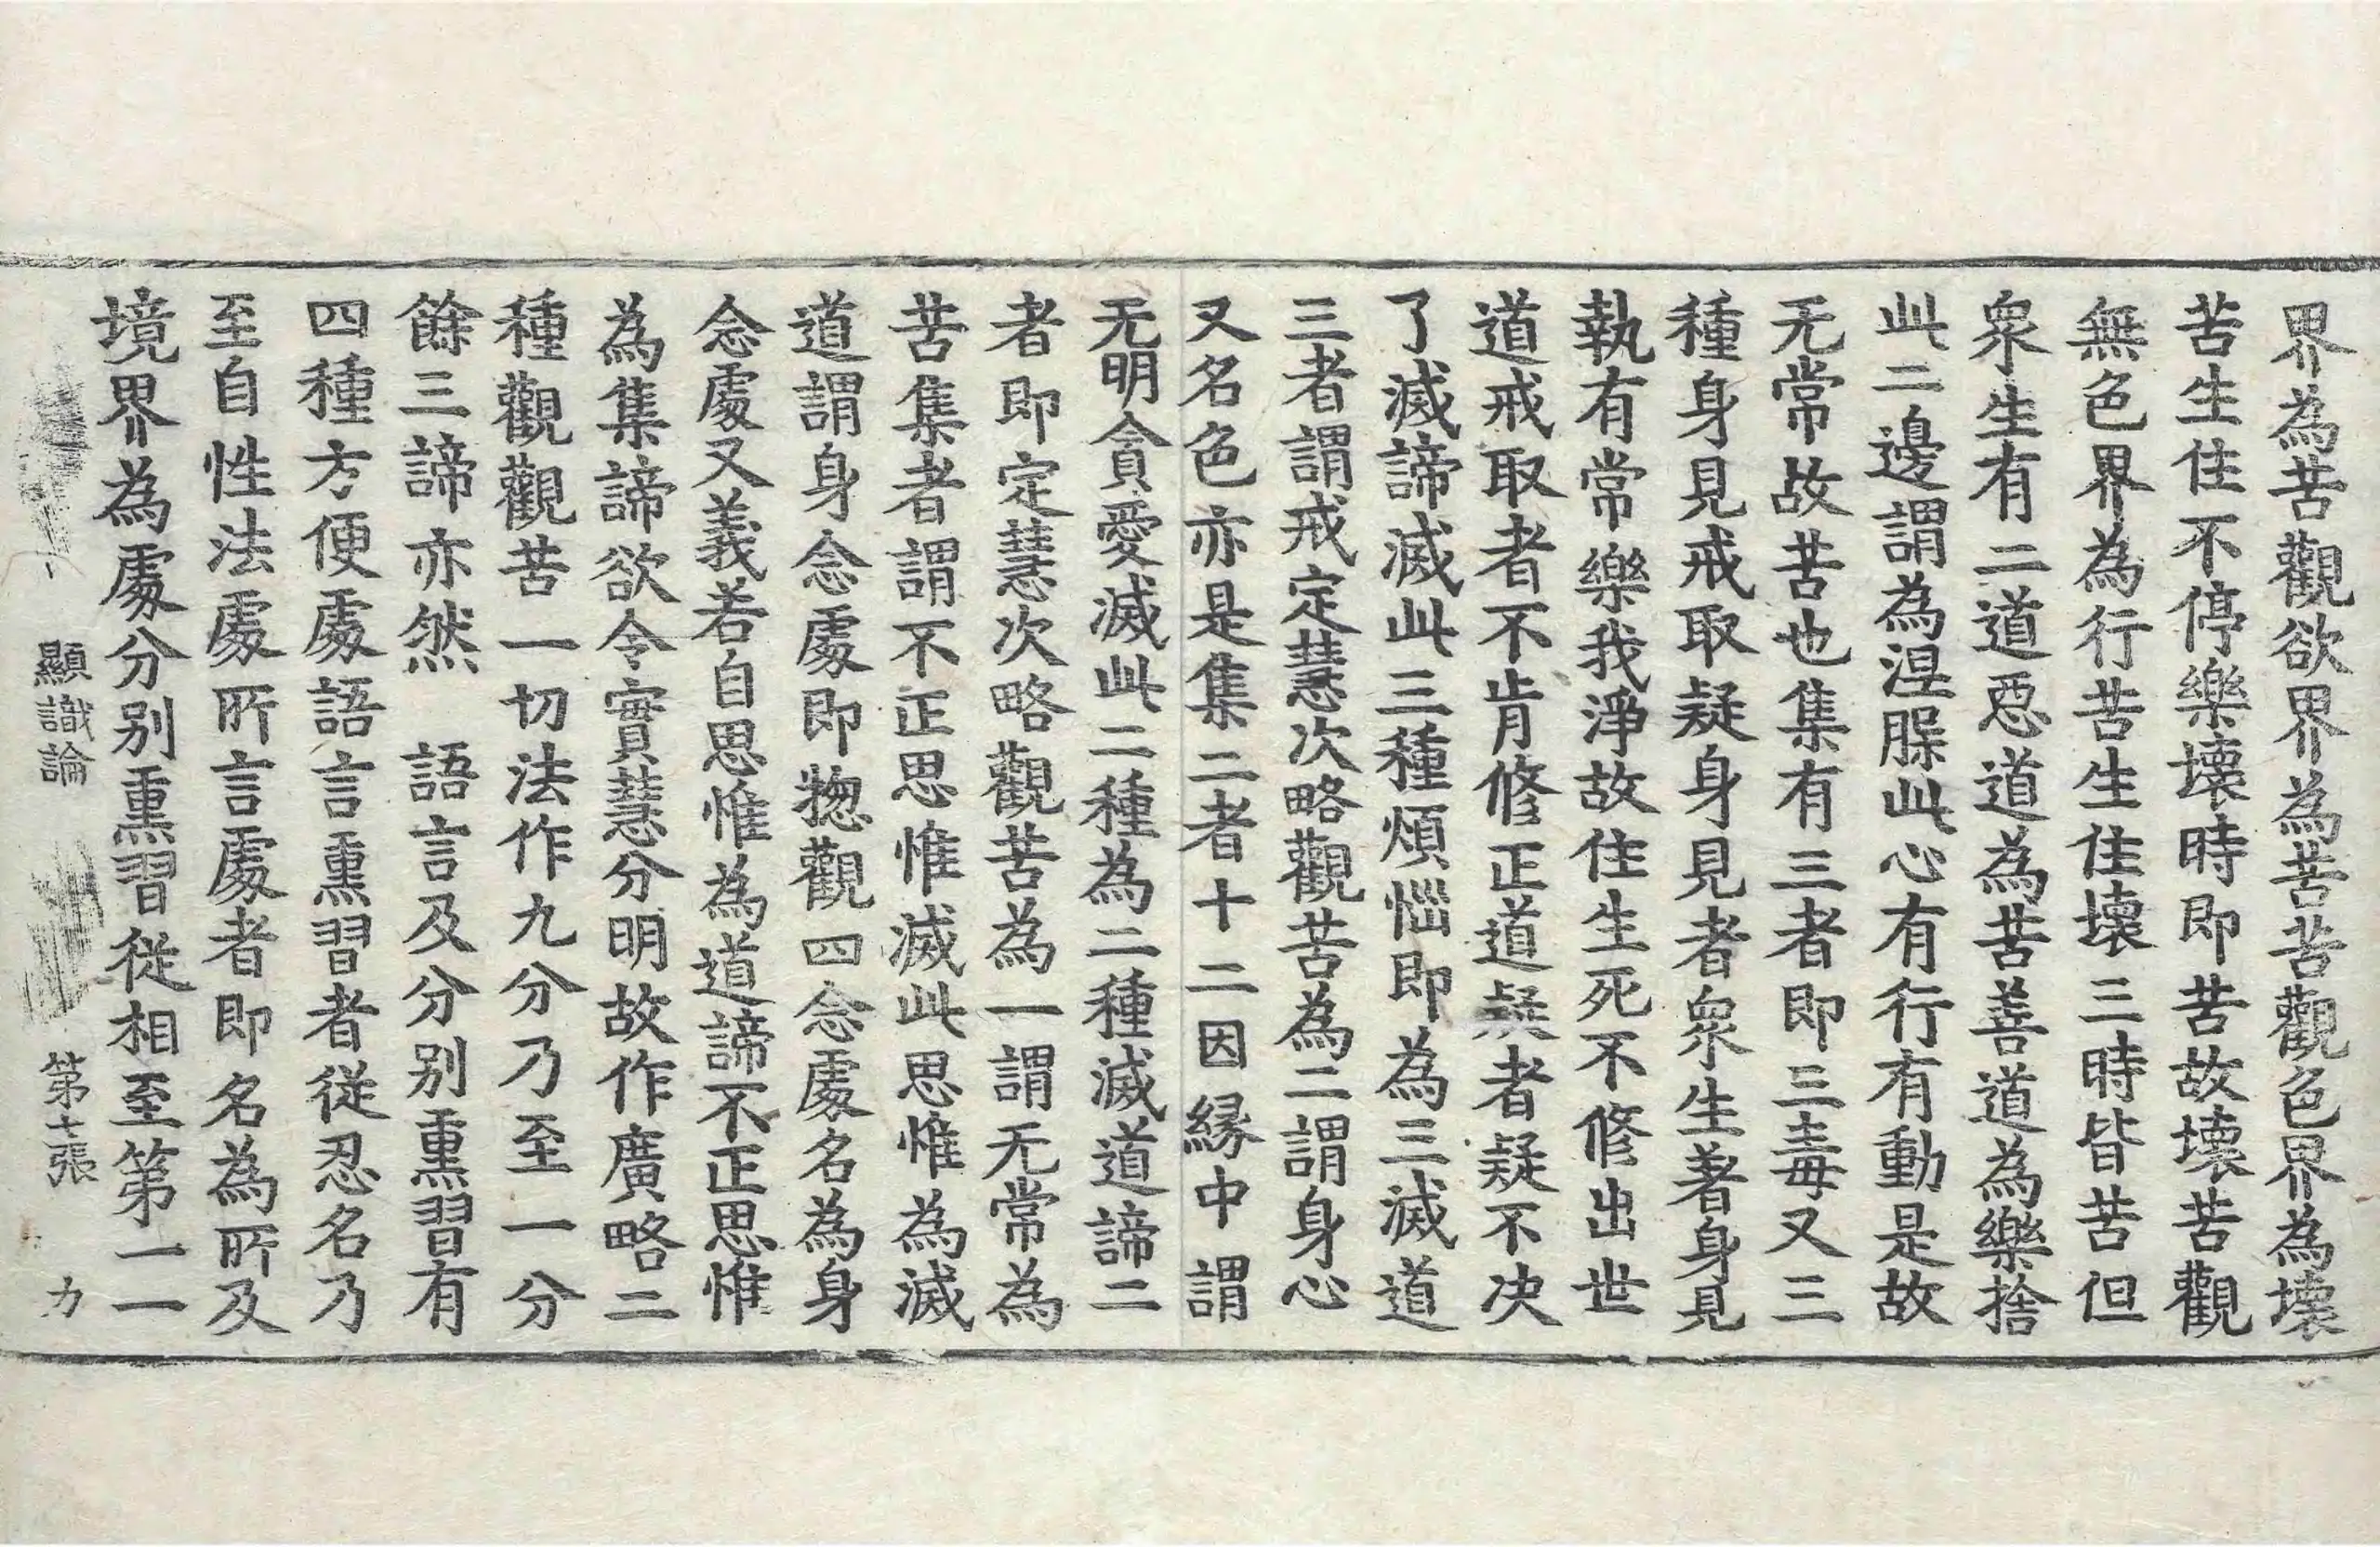 界為苦觀欲界為苦苦觀色界為壞
苦生住不停樂壞時即苦故壞苦觀
無色界為行苦生住壞三時皆苦但
衆生有二道惡道為苦善道為樂捨
此二邊謂為涅脲此心有行有動是故
无常故苦也集有三者即三毒又三
種身見戒取疑身見者衆生著身見
執有常樂我淨故住生死不修出世
道戒取者不肯修正道疑者疑不決
了滅諦滅此三種煩惱即為三滅道
三者謂戒定慧次略觀苦為二謂身心
又名色亦是集二者十二因縁中謂
无明貪愛滅此二種為二種滅道諦二
者即定慧次略觀苦為一謂无常為
苦集者謂不正思惟滅此思惟為滅
道謂身念處即揔觀四念處名為身
念處又義若自思惟為道諦不正思惟
為集諦欲令實慧分明故作廣略二
種觀觀苦一切法作九分乃至一分
餘三諦亦然　語言及分別熏習有
四種方便處語言熏習者從忍名乃
至自性法處所言處者即名為所及
境界為處分別熏習從相至第一一
顯識論　第七張　力